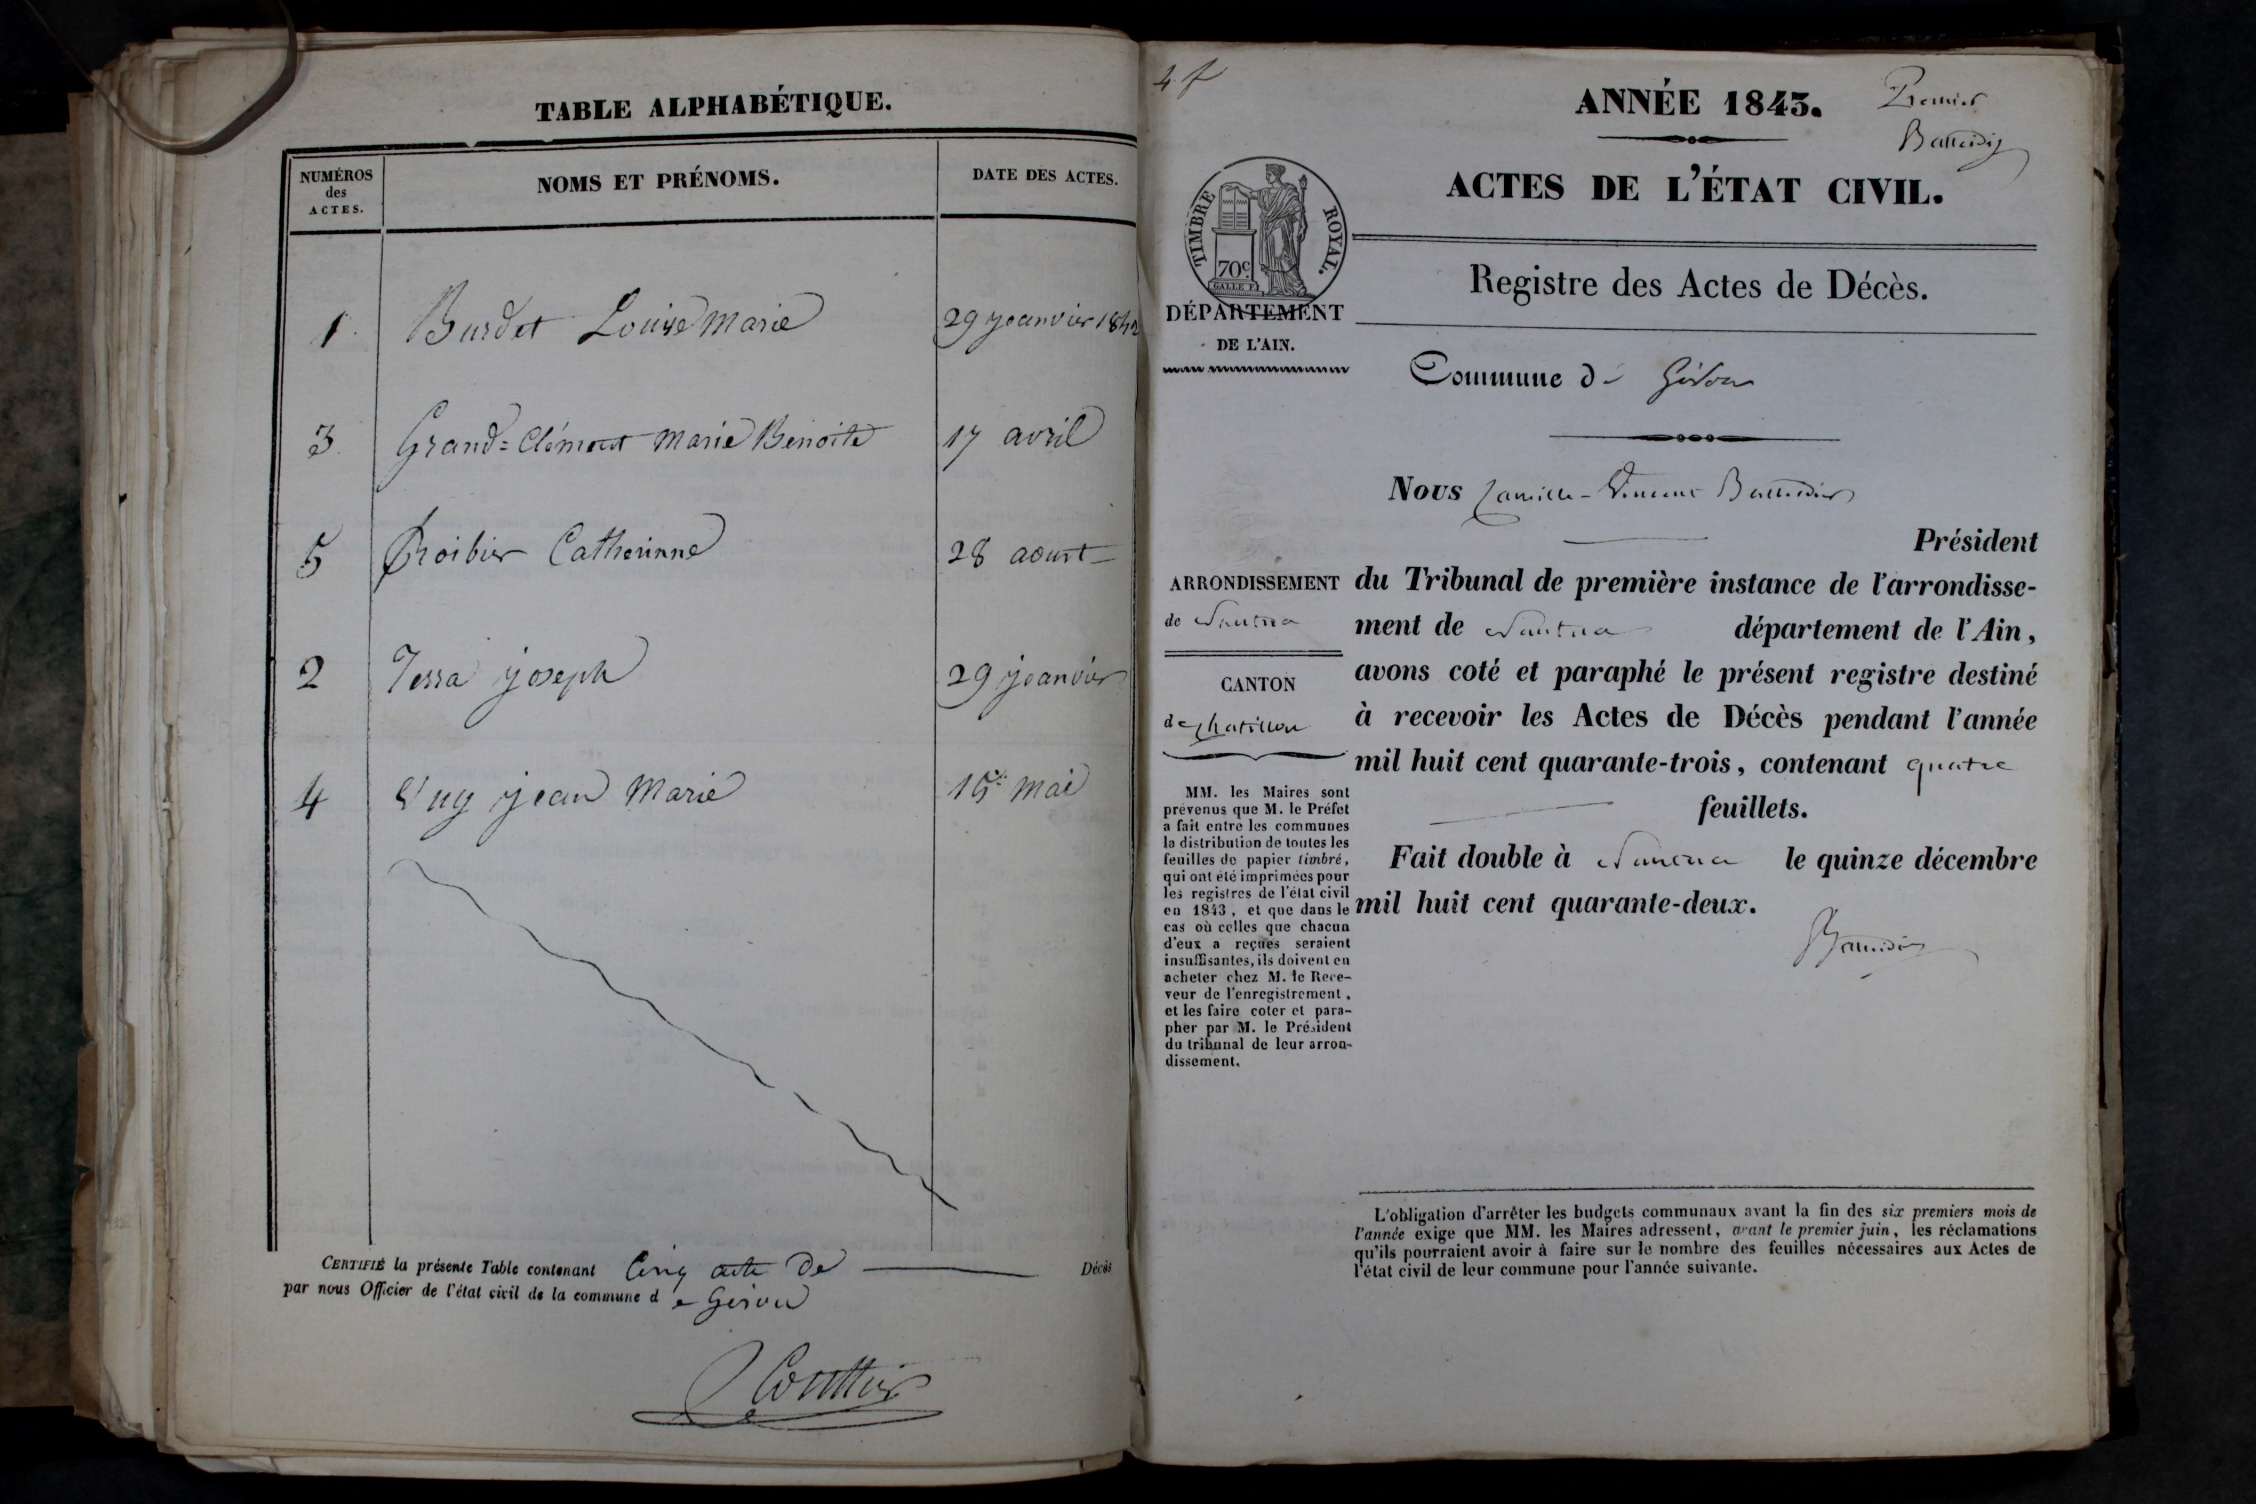 TABLE ALPHABÉTIQUE.
NUMÉROS
des
ACTES.
NOMS ET PRÉNOMS.
DATE DES ACTES.
1 Burdet Louise Marie 29 jeanvier 1842
3 Grand=Clément Marie Benoite 17 avril
5 Proibier Catherinne 28 aoust
2 Tessa joseph 29 jeanvier
4 Vuy jean Marie 15 mai
CERTIFIÉ la présente Table contenant Cinq acte De Décès
par nous Officier de l'état civil de la commune de Giron
4 f
ANNÉE 1843.
Premier
ACTES DE L'ÉTAT CIVIL.
TIMBRE ROYAL.
70c
GALLE F.
DÉPARTEMENT
DE L'AIN.
Registre des Actes de Décès.
Commune de Giron
Nous Camille-Vincent
Président
du Tribunal de première instance de l'arrondisse-
ment de Nantua département de l'Ain,
avons coté et paraphé le présent registre destiné
à recevoir les Actes de Décès pendant l'année
mil huit cent quarante-trois, contenant quatre
feuillets.
Fait double à Nantua le quinze décembre
mil huit cent quarante-deux.
ARRONDISSEMENT
de Nantua
CANTON
de Chatillon
MM. les Maires sont
prévenus que M. le Préfet
a fait entre les communes
la distribution de toutes les
feuilles de papier timbré,
qui ont été imprimées pour
les registres de l'état civil
en 1843, et que dans le
cas où celles que chacun
d'eux a reçues seraient
insuffisantes, ils doivent en
acheter chez M. le Rece-
veur de l'enregistrement,
et les faire coter et para-
pher par M. le Président
du tribunal de leur arron-
dissement.
L'obligation d'arrêter les budgets communaux avant la fin des six premiers mois de
l'année exige que MM. les Maires adressent, avant le premier juin, les réclamations
qu'ils pourraient avoir à faire sur le nombre des feuilles nécessaires aux Actes de
l'état civil de leur commune pour l'année suivante.